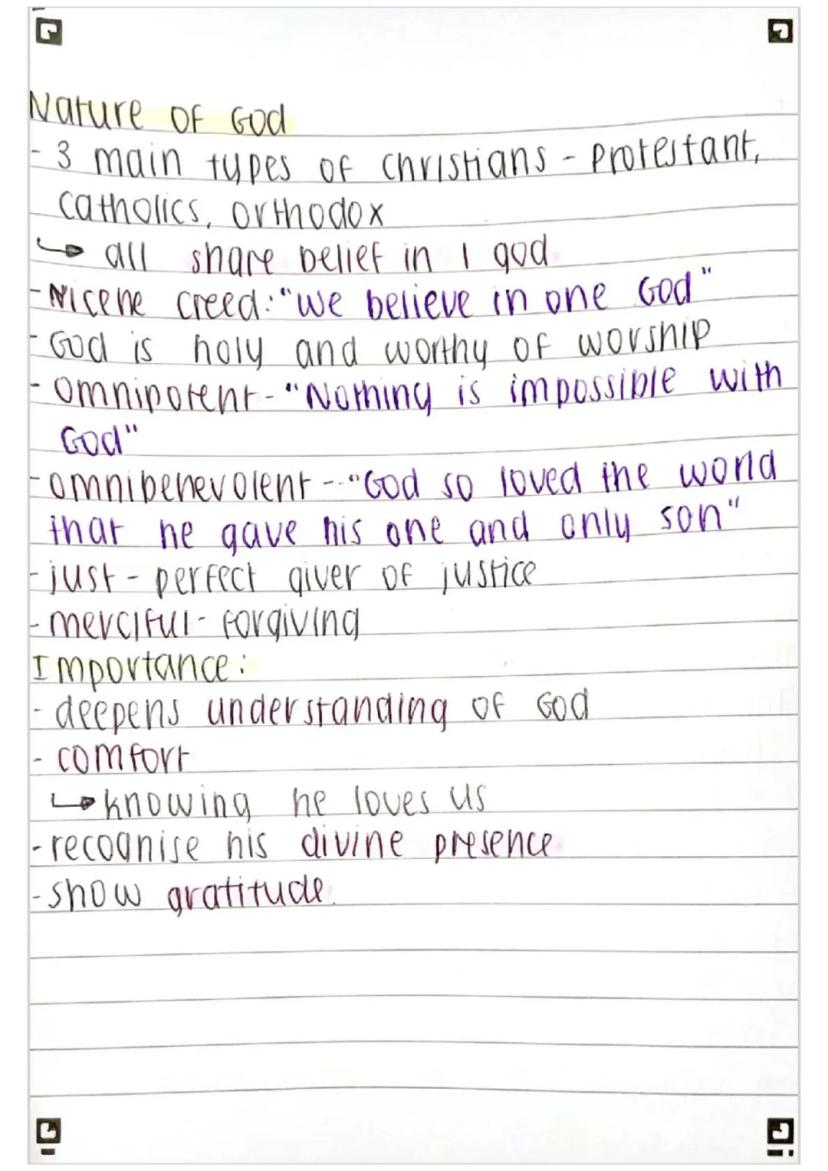 Nature of God
- 3 main types of christians - Protestant,
catholics, orthodox
↳ all share belief in 1 god
- Nicene creed: "we believe in one God"
- God is holy and worthy of worship
- omnipotent - "Nothing is impossible with
God"
- omnibenevolent -- "God so loved the world
that he gave his one and only son"
- just - perfect giver of justice
- merciful - forgiving
Importance:
- deepens understanding of God
- comfort
↳ knowing he loves us
- recognise his divine presence
- show gratitude.